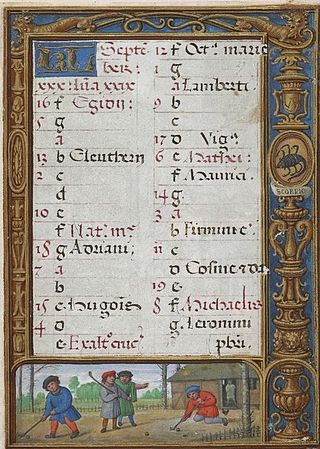 KL Septē
ber:
xxx: lūa xxix
16 f Egidii:
5 g
a
13 b Eleutherii
2 c
d
10 e
f Nat. m̄e
18 g Adriani:
7 a
b
15 c
4 d
e Exalt. cruc̄
12 f Oct. marie
1 g
a Lamberti.
9 b
c
17 d Vig.
6 e Mathei:
f Maurici.
14 g
3 a
b Firmini e
11 c
d Cosme
19 e
8 f Michaelis
g Ieronimi
pb̄ri.
SCORPIO